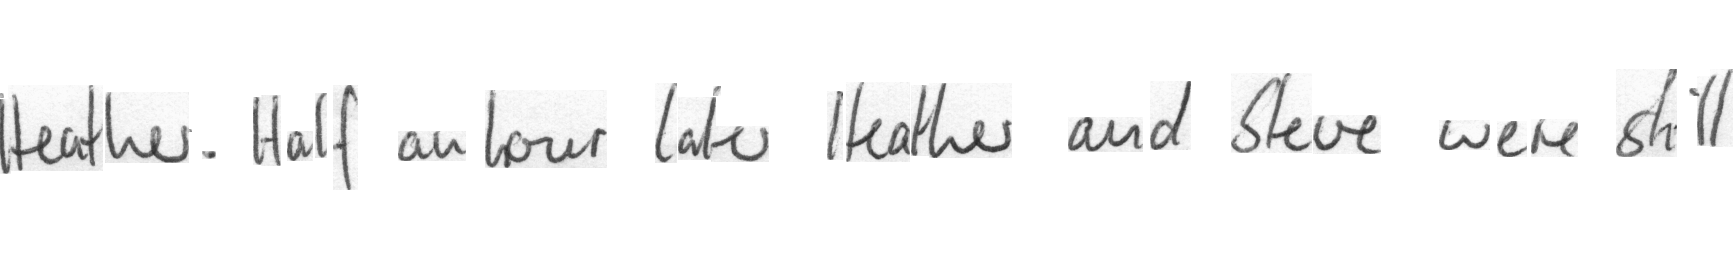 Heather. Half an hour later Heather and Steve were still